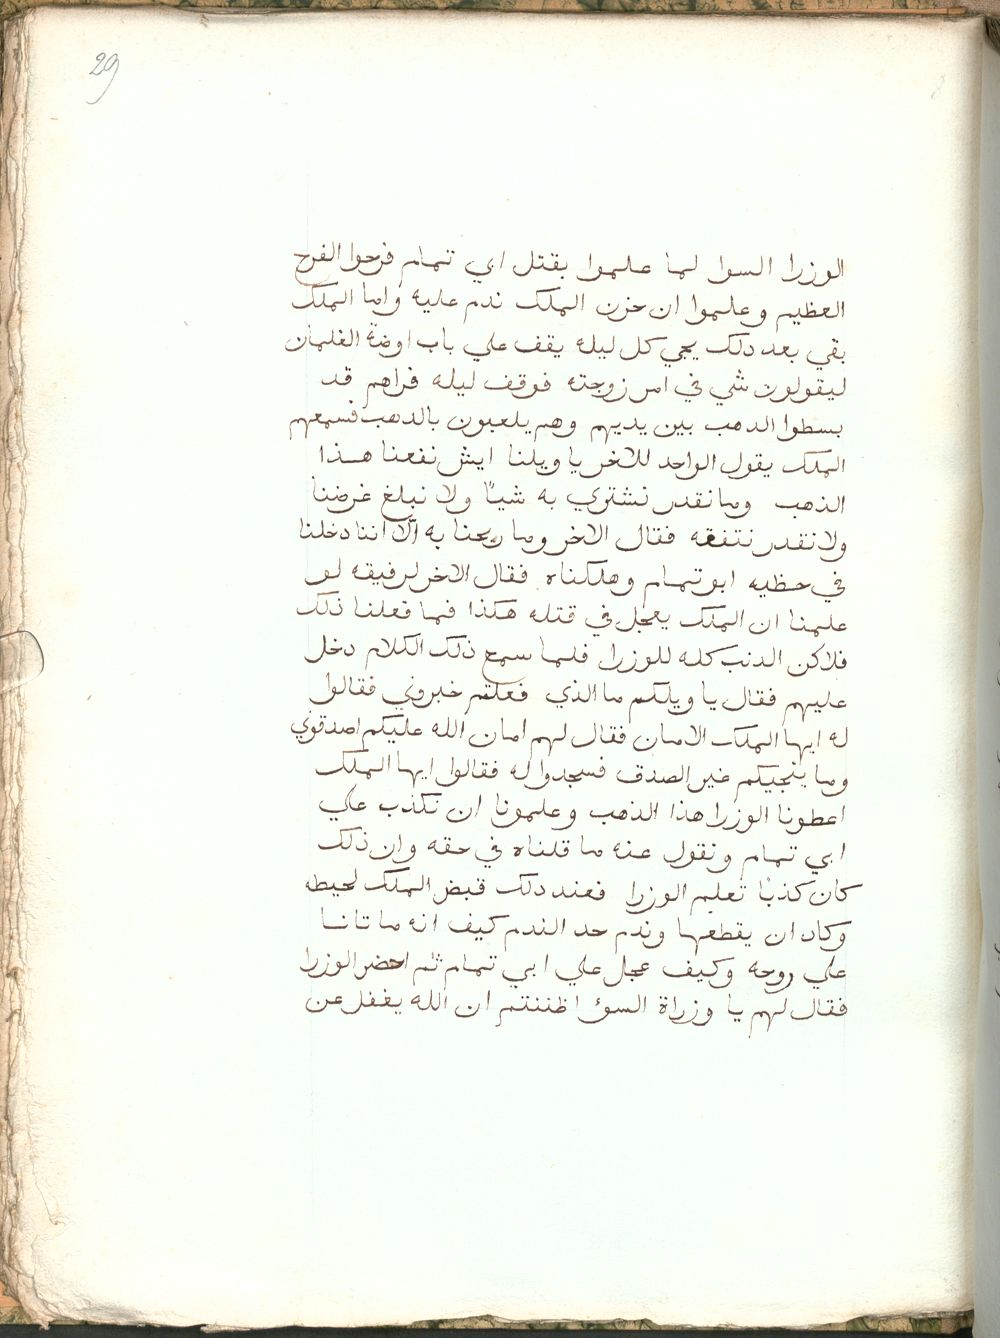 29
الوزرا السوا لما علموا بقتل ابي تمام فرحوا الفرح
العظيم وعلموا ان حزن الملك ندم عليه واما الملك
بقي بعد دلك يجي كل ليله يقف علي باب اوضة الغلمان
ليقولون شي في امر زوجته فوقف ليله فراهم قد
بسطوا الدهب بين يديهم وهم يلعبون بالدهب فسمعهم
الملك يقول الواحد للاخر يا ويلنا ايش نفعنا هذا
الذهب وما نقدر نشتري به شيئا ولا نبلغ غرضنا
ولا نقدر نتفقه فقال الاخر وما ربحنا به الا اننا دخلنا
في حظيه ابو تمام وهلكناه فقال الاخر لرفيقه لو
علمنا ان الملك يعجل في قتله هكذا فما فعلنا ذلك
فلاكن الدنب كله للوزرا فلما سمع ذلك الكلام دخل
عليهم فقال يا ويلكم ما الذي فعلتم خبروني فقالوا
له ايها الملك الامان فقال لهم امان الله عليكم اصدقوني
وما ينجيكم غير الصدق فسجدوا له فقالوا ايها الملك
اعطونا الوزرا هذا الذهب وعلمونا ان نكذب علي
ابي تمام ونقول عنه ما قلناه في حقه وان ذلك
كان كذبا تعليم الوزرا فعند دلك قبض الملك لحيطه
وكاد ان يقطعها وندم حد الندم كيف انه ما تانا
علي روحه وكيف عجل علي ابي تمام ثم احضر الوزرا
فقال لهم يا وزراة السوء اظننتم ان الله يغفل عن